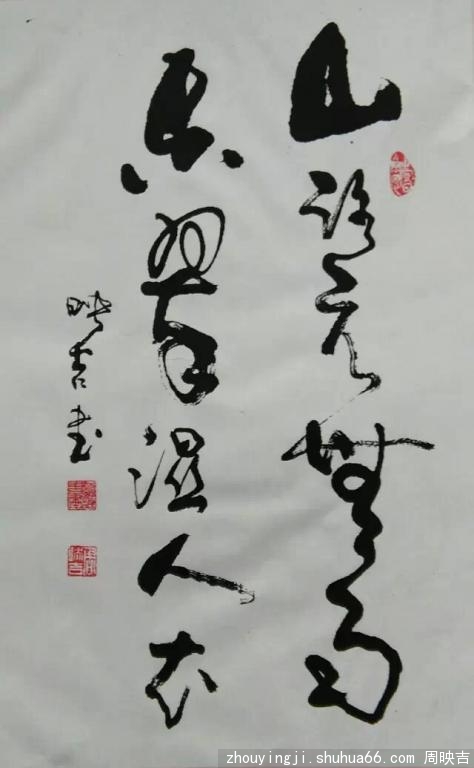 山路元無雨
空翠濕人衣
映吉書
zhouyingji.shuhua66.com 周映吉